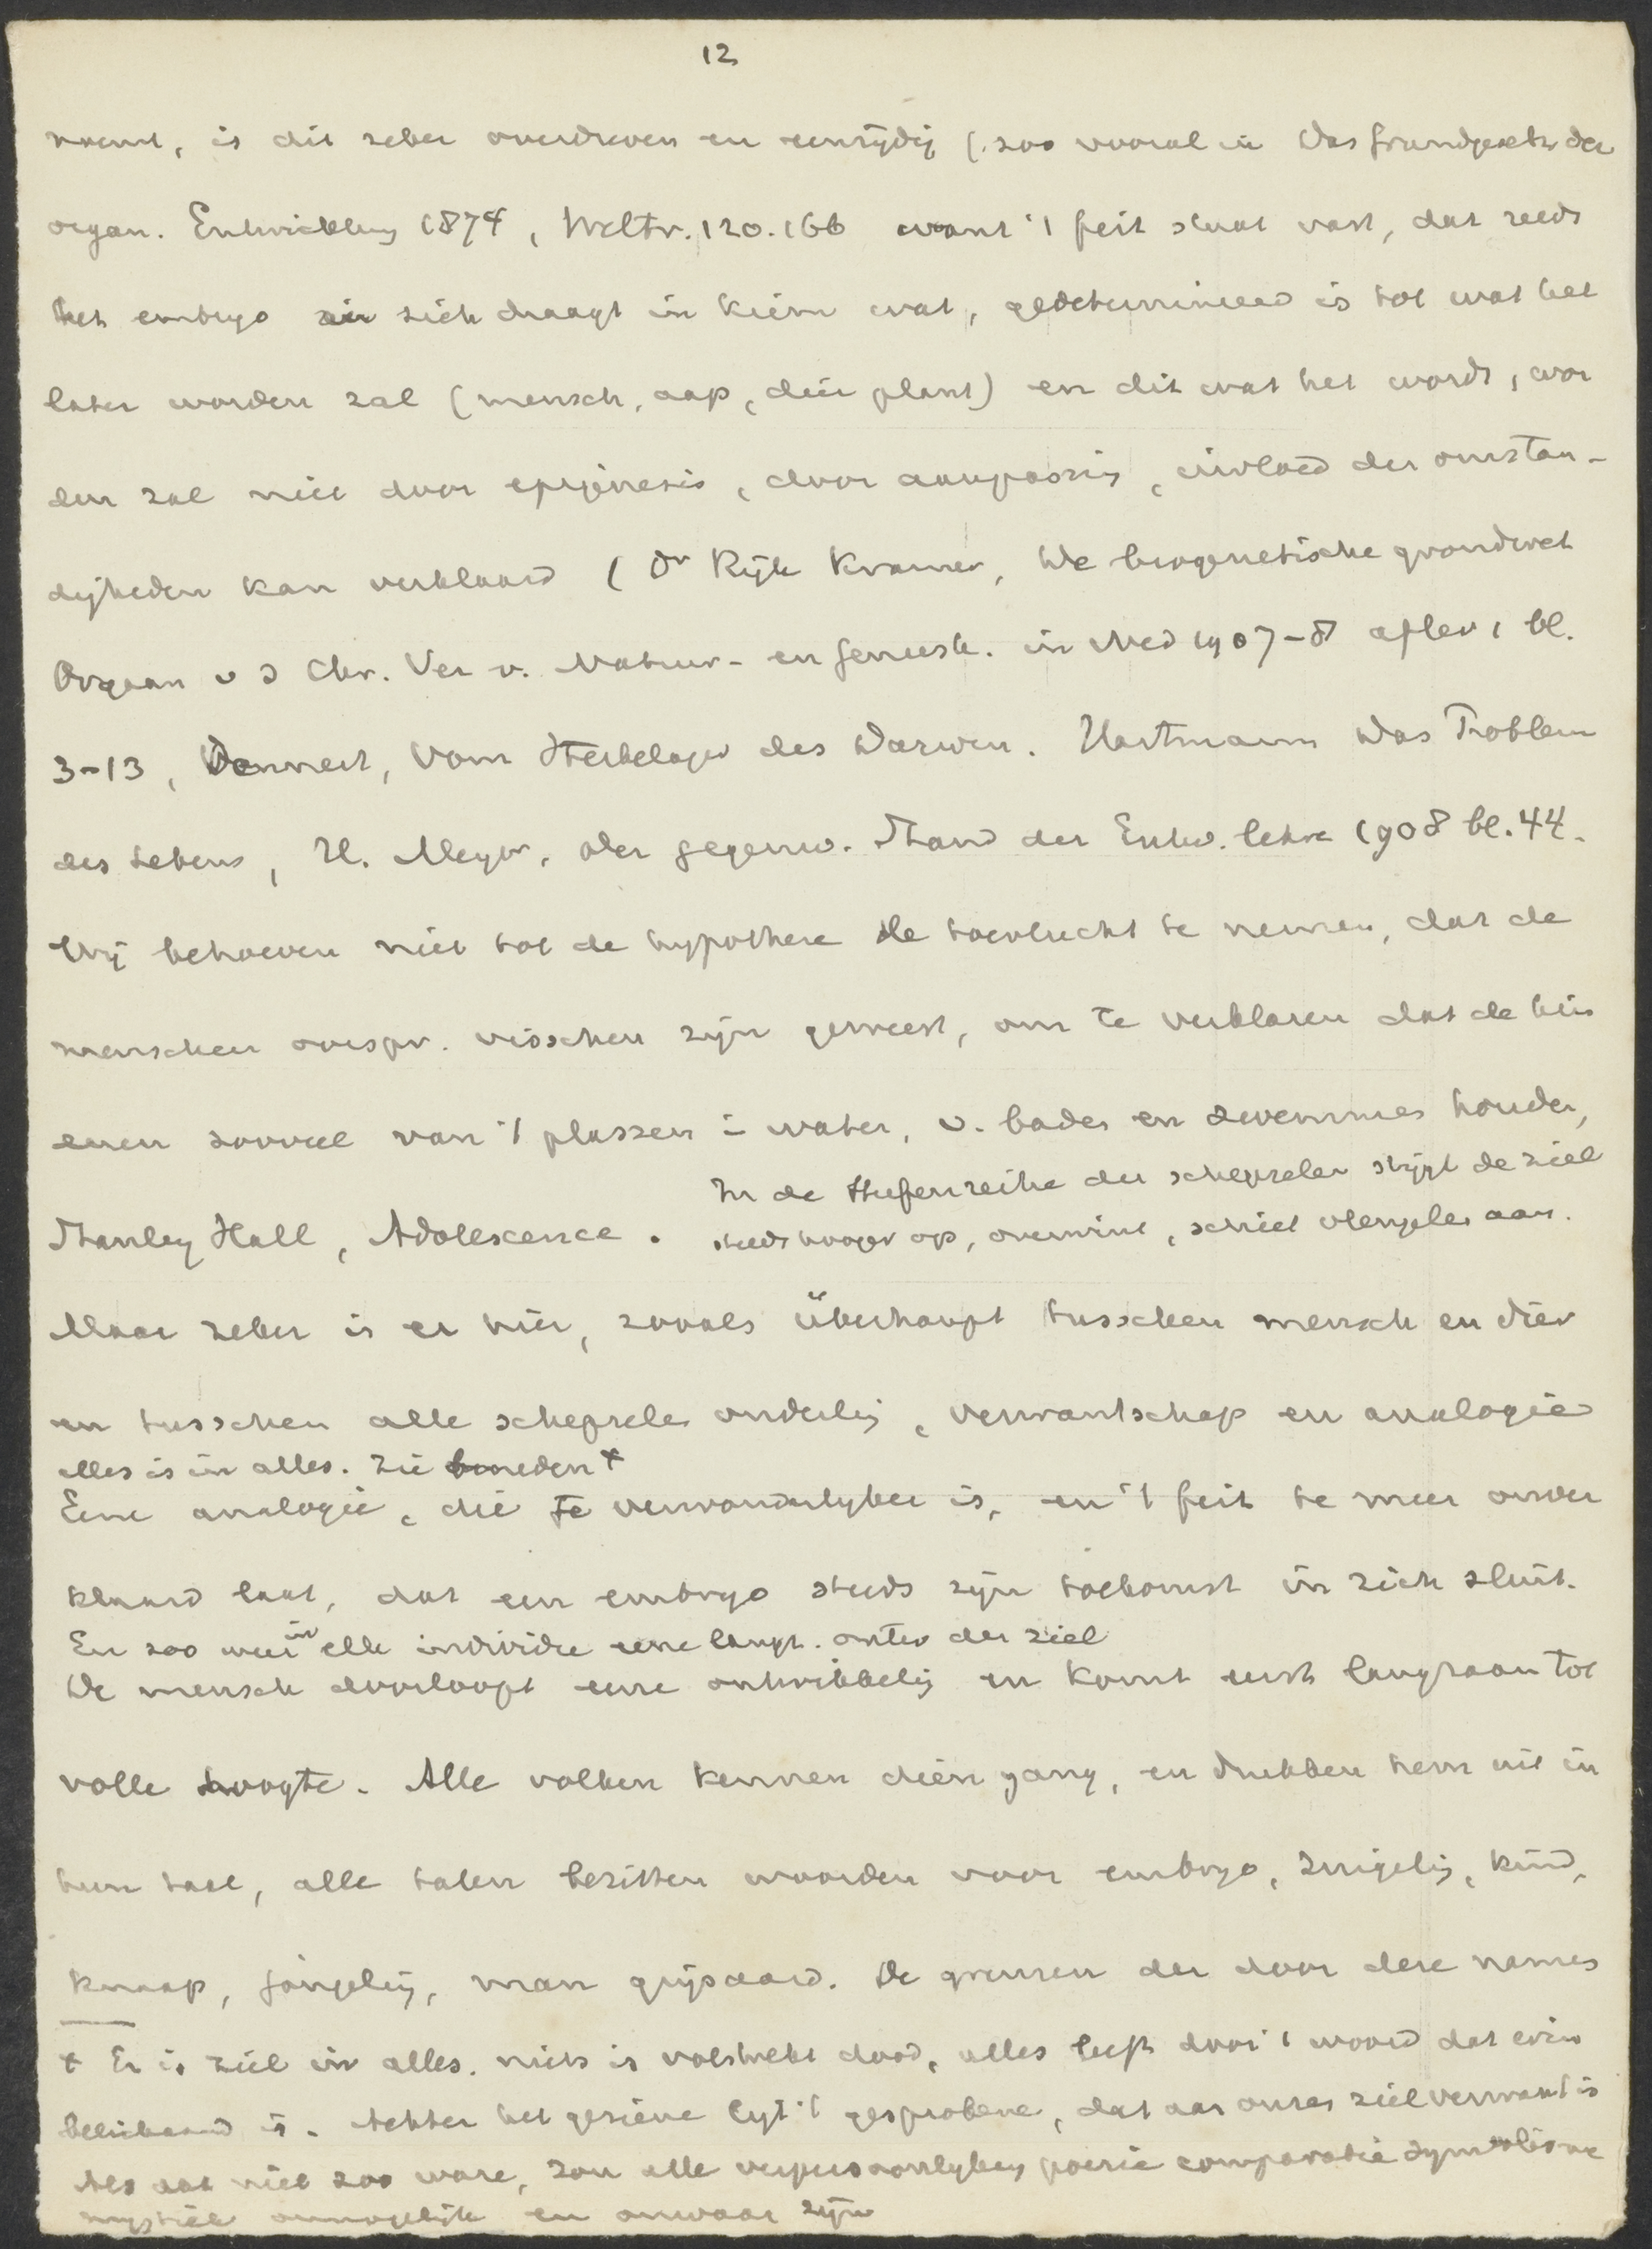 12
noemt, is dit zeker overdreven en eenzijdig (zoo vooral in Das Grundgesetz der
organ. Entwicklung 1874, Weltr. 120.166 want 't feit staat vast, dat reeds
het embryo in zich draagt in kiem wat, gedetermineerd is tot wat het
later worden zal (mensch, aap, dier plant) en dit wat het wordt, wor
den zal niet door epigenesis, door aanpassing, invloed der omstan-
digheden kan verklaard (Dr Rijk Kramer, De biogenetische grondwet
Orgaan v d Chr. Ver v. Natuur- en Geneesk. in Ned 1907-8 aflev 1 bl.
3-13, Dennert, Vom Sterbelager des Darwin. Hartmann Das Problem
des Lebens, H. Meyer, der gegenw. Stand der Entw. lehre 1908 bl. 44.
Wij behoeven niet tot de hypothese de toevlucht te nemen, dat de
menschen oorspr. visschen zijn geweest, om te verklaren dat de
zooveel van 't plassen i water, v. baden en zwemmen houden,
In de Stufenreihe der schepselen stijgt de ziel
Stanley Hall, Adolescence. steeds hooger op, overwint, schiet vleugelen aan.
Maar zeker is er hier, zooals überhaupt tusschen mensch en dier
en tusschen alle schepselen onderling, verwantschap en analogie
alles is in alles. Zie beneden +
Eene analogie, die te verwonderlijker is, en 't feit te meer onver
klaard laat, dat een embryo steeds zijn toekomst in zich sluit.
En zoo weer in elk individu eene langz. ontw der ziel
De mensch doorloopt eene ontwikkeling en komt eerst langzaam tot
volle hoogte. Alle volken kennen dien gang, en drukken hem uit in
hun taal, alle talen bezitten woorden voor embryo, zuigeling, kind,
knaap, jongeling, man grijsaard. De grenzen der door deze namen
+ Er is ziel in alles. niets is volstrekt dood, alles leeft door 't woord dat erin
belichaamd is. Achter het geziene ligt 't gesprokene, dat aan onze ziel verwant is
Als dat niet zoo ware, zou alle verpersoonlijking poezie comparatie symbolisme
mystiek onmogelijk en onwaar zijn